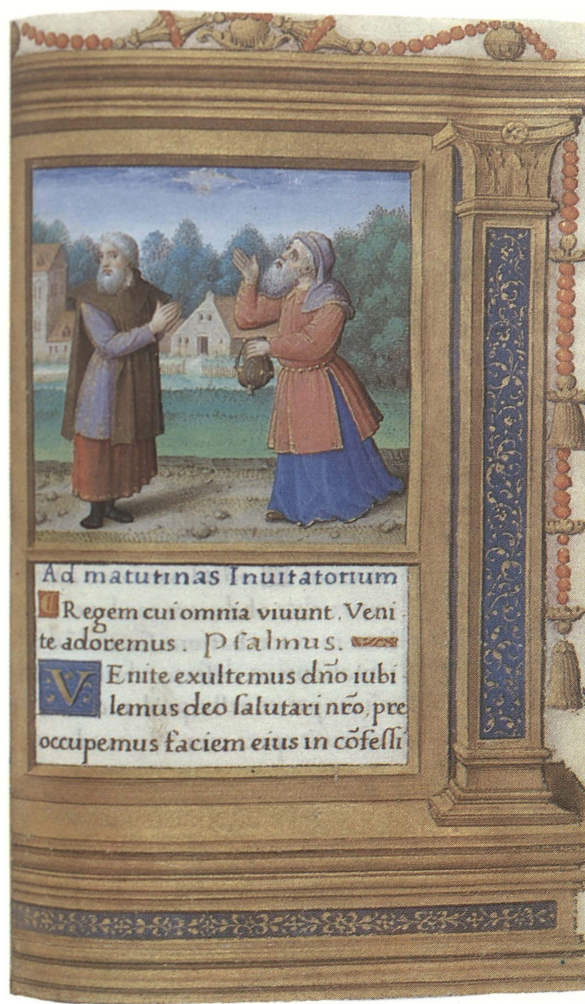 Ad matutinas Inuitatorium
Regem cui omnia viuunt. Veni
te adoremus. Pſalmus.
VEnite exultemus dño iubi
lemus deo ſalutari nr̃o, pre
occupemus faciem eius in cõfeſſi